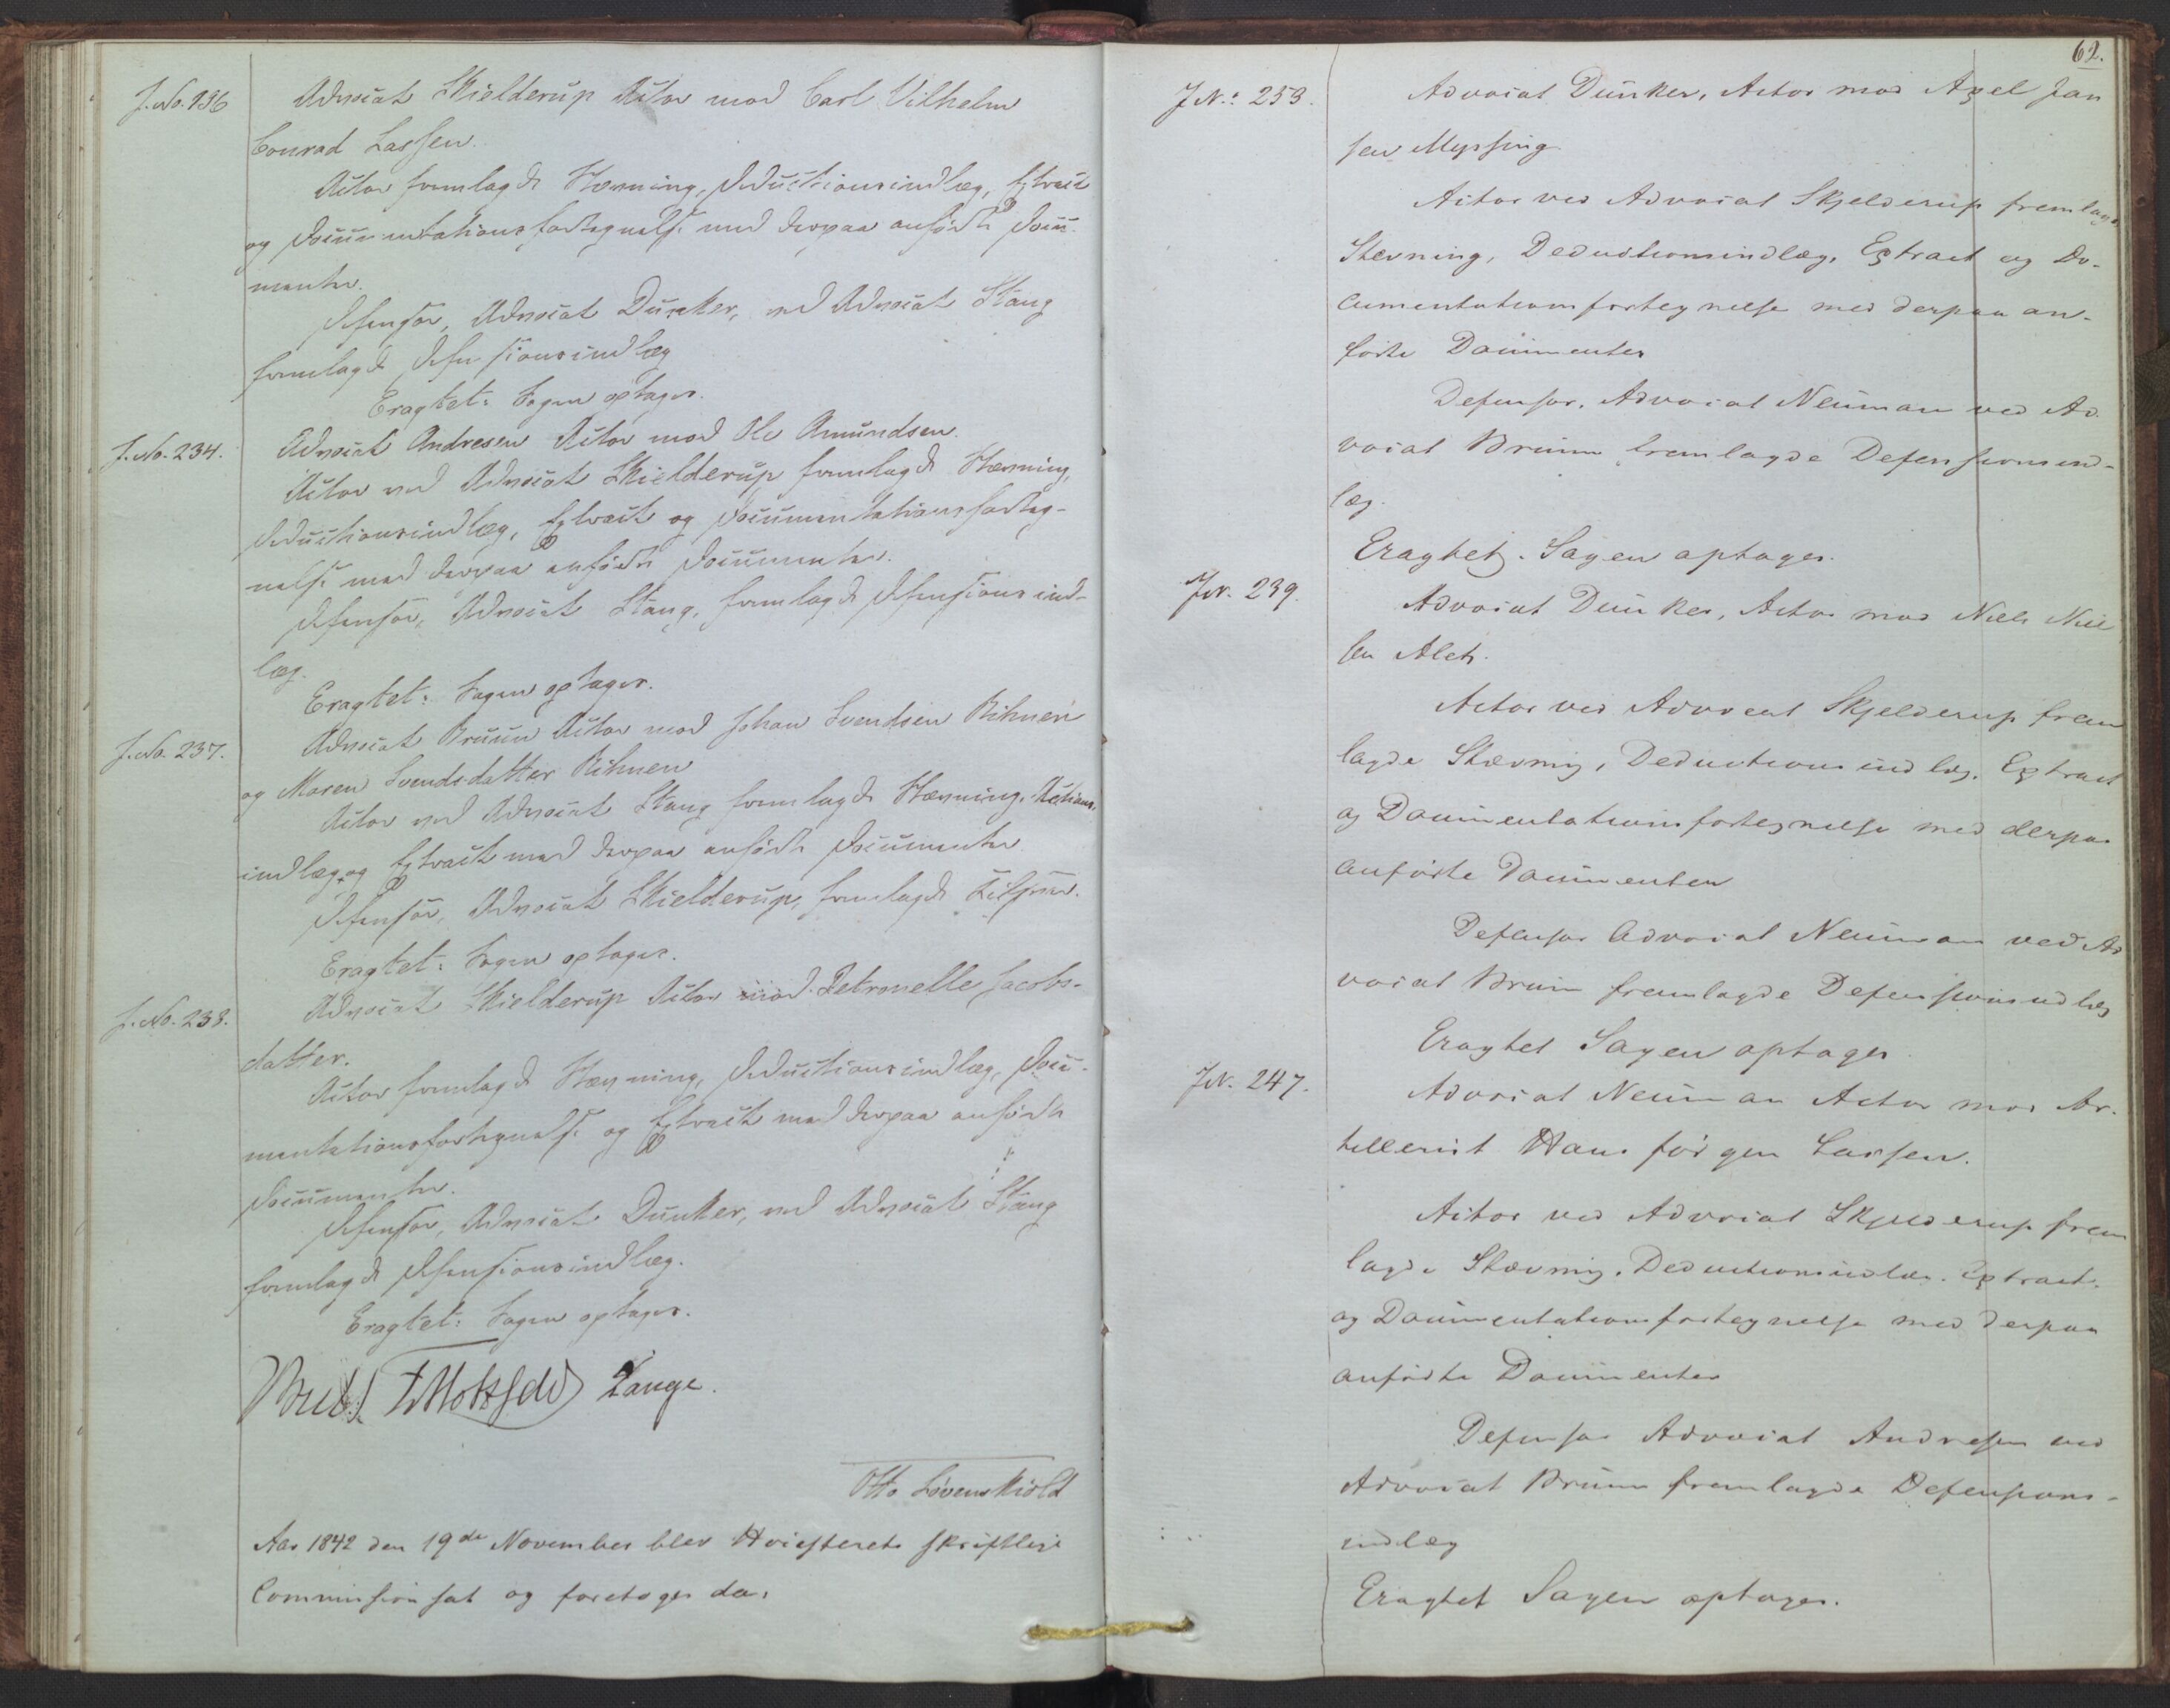 J. No. 196
Advocat Skielderup Actor mod Carl Vilhelm
Conrad Lassen.
Actor fremlagde Stævning, Deductionsindlæg, Extract
og Documentationsfortegnelse med derpaa anførte Docu-
menter.
Defensor, Advocat Dunker, ved Advocat Stang
fremlagde Defensionsindlæg
Eragtet: Sagen optages.
J. No. 234.
Advocat Andresen Actor mod Ole Amundsen.
Actor ved Advocat Skielderup fremlagde Stævning,
Deductionsindlæg, Extract og Documentationsforteg-
nelse med derpaa anførte Documenter.
Defensor, Advocat Stang, fremlagde Defensionsind-
læg.
Eragtet: Sagen optages.
J. No. 237.
Advocat Bruun Actor mod Johan Svendsen
og Maren Svendsdatter
Actor ved Advocat Stang fremlagde Stævning, Actions-
indlæg og Extract med derpaa anførte Documenter
Defensor, Advocat Skielderup, fremlagde
Eragtet: Sagen optages.
J. No. 238.
Advocat Skielderup Actor mod Petronelle Jacobs-
datter.
Actor fremlagde Stævning, Deductionsindlæg, Docu-
mentationsfortegnelse og Extract med derpaa anførte
Documenter.
Defensor, Advocat Dunker, ved Advocat Stang
fremlagde Defensionsindlæg.
Eragtet: Sagen optages.
Lange.
Otto Løvenskiold
Aar 1842 den 19de November blev Høiesterets skriftlige
Commission sat og foretoges da:
62.
J N.: 253.
Advocat Dunker, Actor mod Axel Jan
sen Myssing
Actor ved Advocat Skjelderup fremlagde
Stævning, Deductionsindlæg, Extract og Do-
cumentationsfortegnelse med derpaa an-
førte Documenter
Defensor, Advocat Neuman ved Ad-
vocat Bruun fremlagde Defensionsind-
læg.
Eragtet. Sagen optages.
JN. 239.
Advocat Dunker, Actor mod Niels Niel
sen
Actor ved Advocat Skjelderup frem
lagde Stævning, Deductionsindlæg, Extract
og Documentationsfortegnelse med derpaa
anførte Documenter
Defensor Advocat Neuman ved Ad
vocat Bruun fremlagde Defensionsindlæg
Eragtet Sagen optages
JN. 247.
Advocat Neuman Actor mod Ar-
tillerist Hans Jørgen Larsen.
Actor ved Advocat Skjelderup frem
lagde Stævning, Deductionsindlæg, Extract,
og Documentationsfortegnelse med derpaa
anførte Documenter
Defensor Advocat Andresen ved
Advocat Bruun fremlagde Defensions-
indlæg
Eragtet Sagen optages.